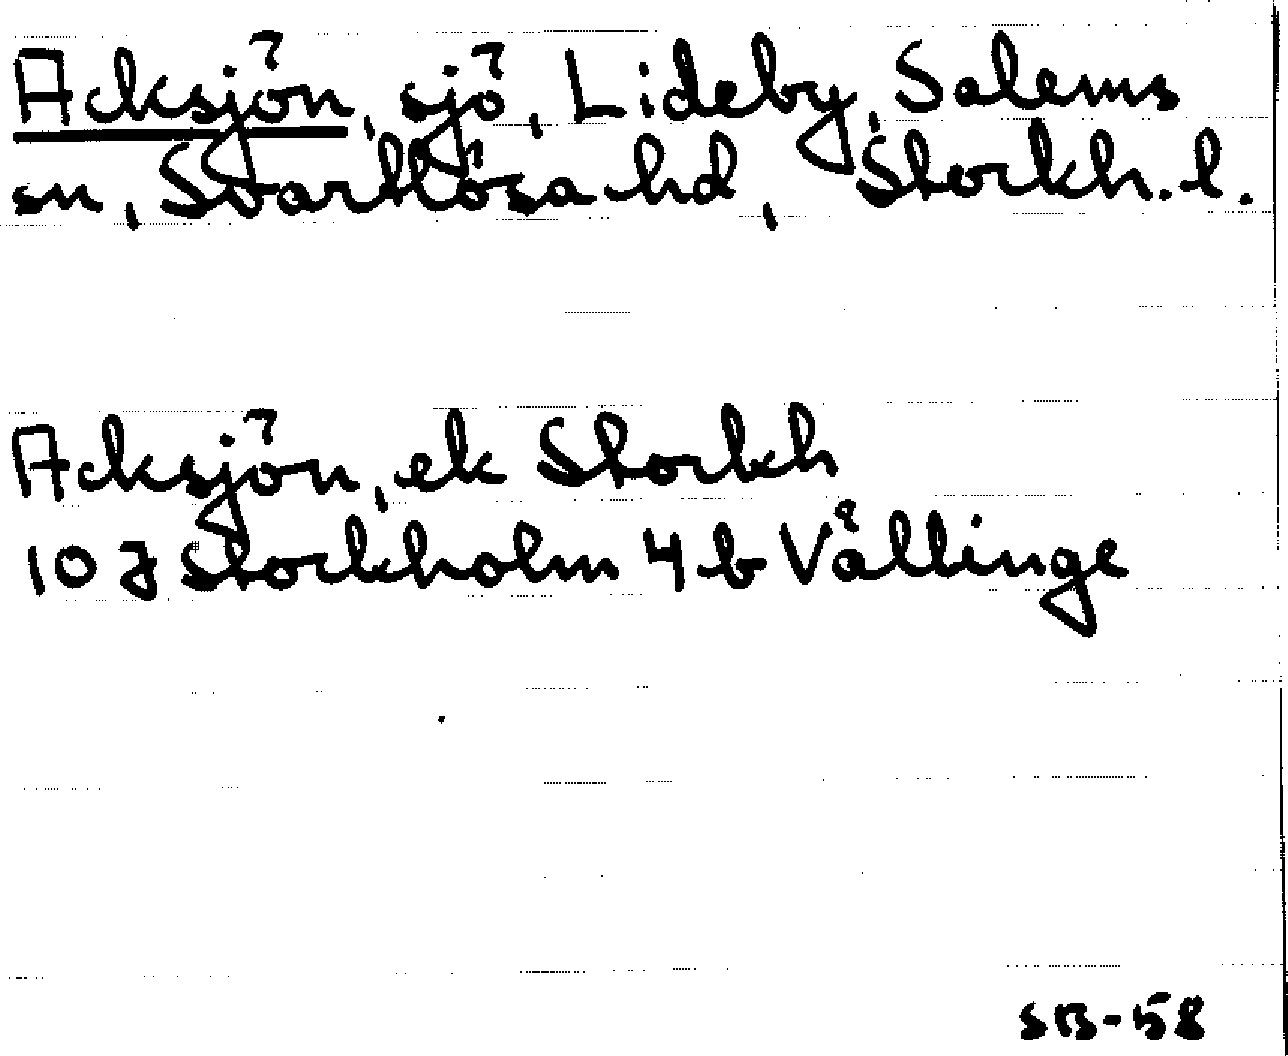 Acksjön, sjö, Lideby, Salems
sn, Svartlösa hd, Stockh. l.
Acksjön, ek Stockh
10 J Stockholm 4 b Vållinge
SB-58